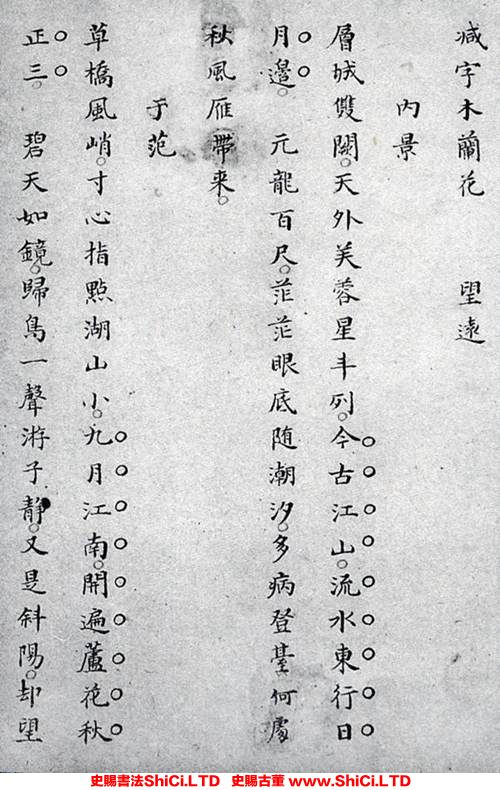 减字木蘭花 望遠
内景
層城雙闕。天外芙蓉星斗列。今古江山。流水東行日
月邊。 元龍百尺。茫茫眼底随潮汐。多病登臺何處
秋風雁帶来。
于范
草橋風峭。寸心指點湖山小。九月江南。開遍蘆花秋
正三。 碧天如鏡。歸鳥一聲游子靜。又是斜陽。却望
史賜書法ShiCi.LTD 史賜古董 www.ShiCi.LTD